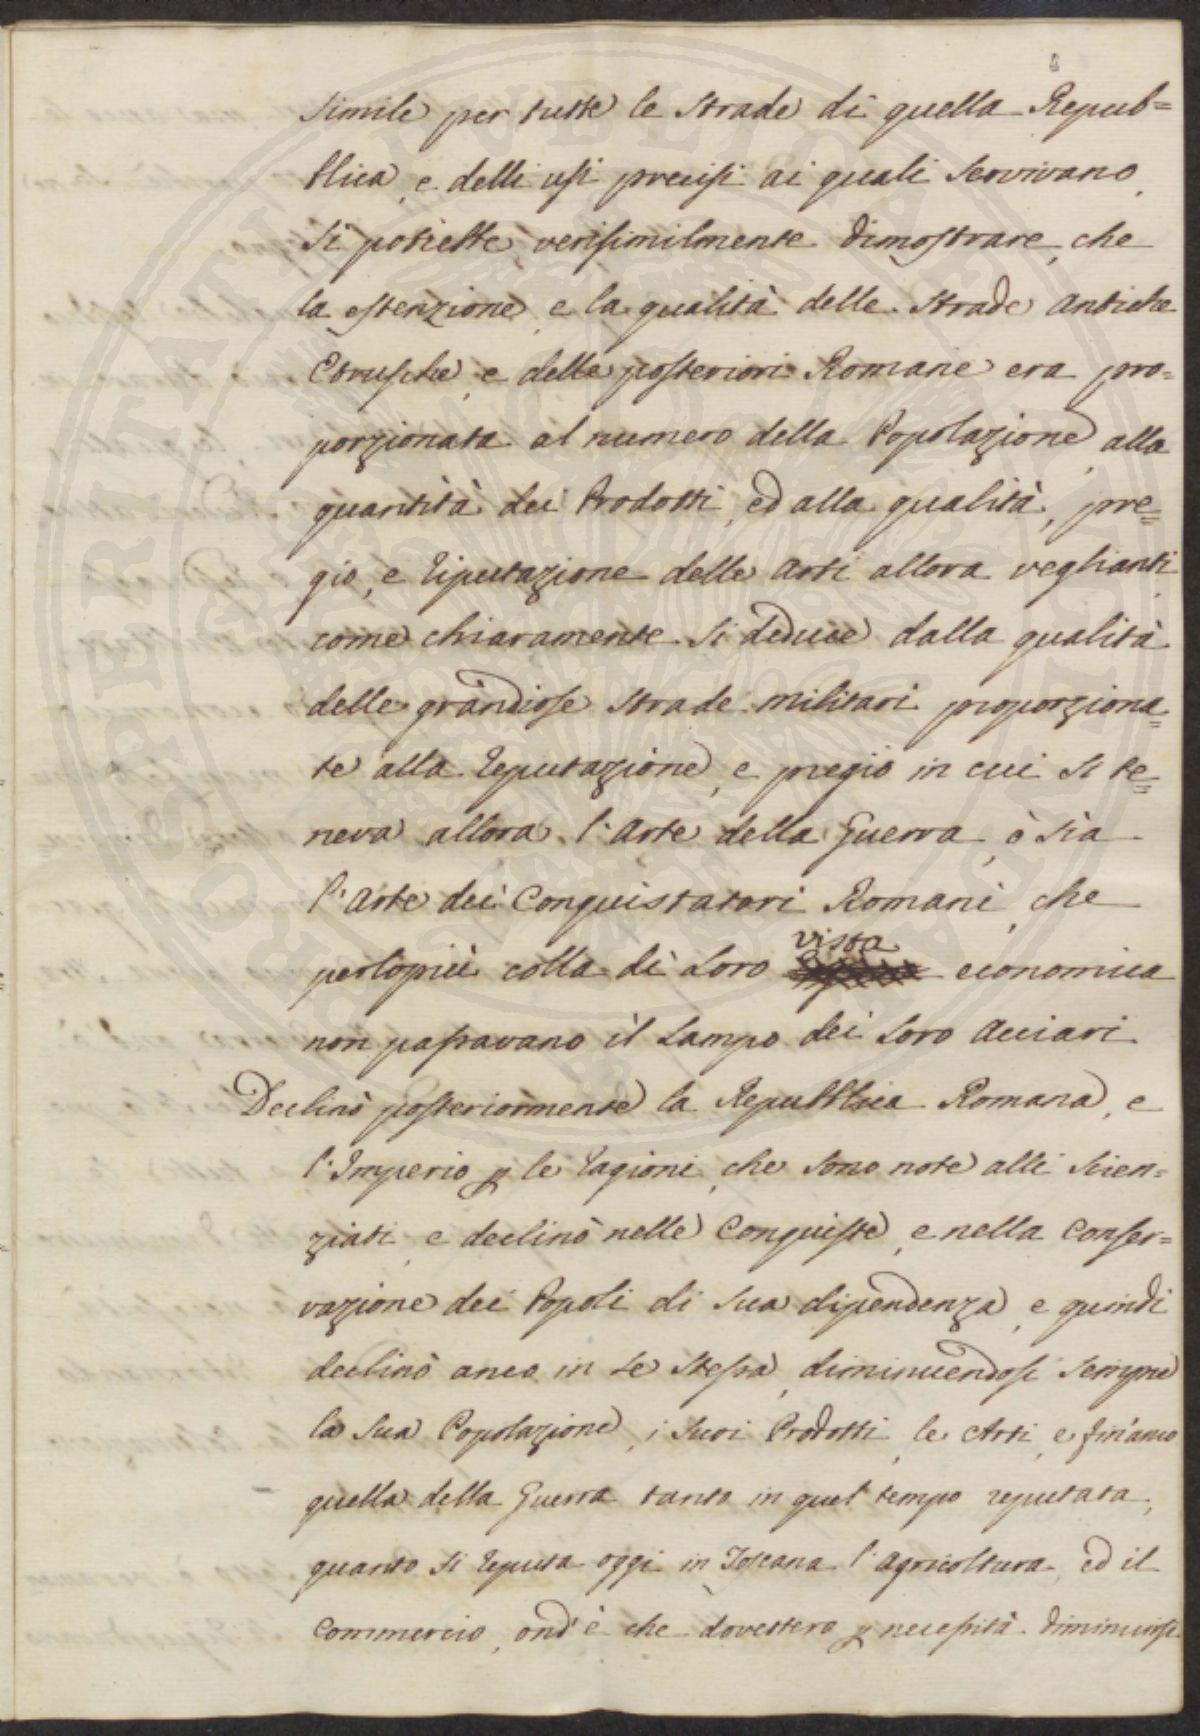 simile per tutte le Strade di quella Repub=
blica, e delli usi precisi ai quali servivano,
si potrebbe verisimilmente dimostrare, che
la estenzione, e la qualità delle Strade Antiche
Etrusche, e delle posteriori Romane era pro=
porzionata al numero della Popolazione, alla
quantità dei Prodotti, ed alla qualità, pre=
gio, e riputazione delle Arti allora veglianti,
come chiaramente si deduce dalla qualità
delle grandiose Strade militari proporziona=
te alla reputazione, e pregio in cui si te=
neva allora l'Arte della Guerra, ò sia
l'Arte dei Conquistatori Romani, che
perlopiù colla di Loro vista economica
non passavano il Lampo dei Loro Acciari.
Declinò posteriormente la Repubblica Romana, e
l'Imperio p le ragioni, che sono note alli Scien=
ziati, e declinò nelle Conquiste, e nella Conser=
vazione dei Popoli di sua dipendenza, e quindi
declinò anco in se stessa, diminuendosi sempre
la sua Popolazione, i suoi Prodotti, le Arti, e fin'anco
quella della Guerra tanto in quel tempo reputata,
quanto si reputa oggi in Toscana l'Agricoltura, ed il
Commercio, ond'è che dovettero p necessità diminuirsi
PROSPERITATI PVBLICAE